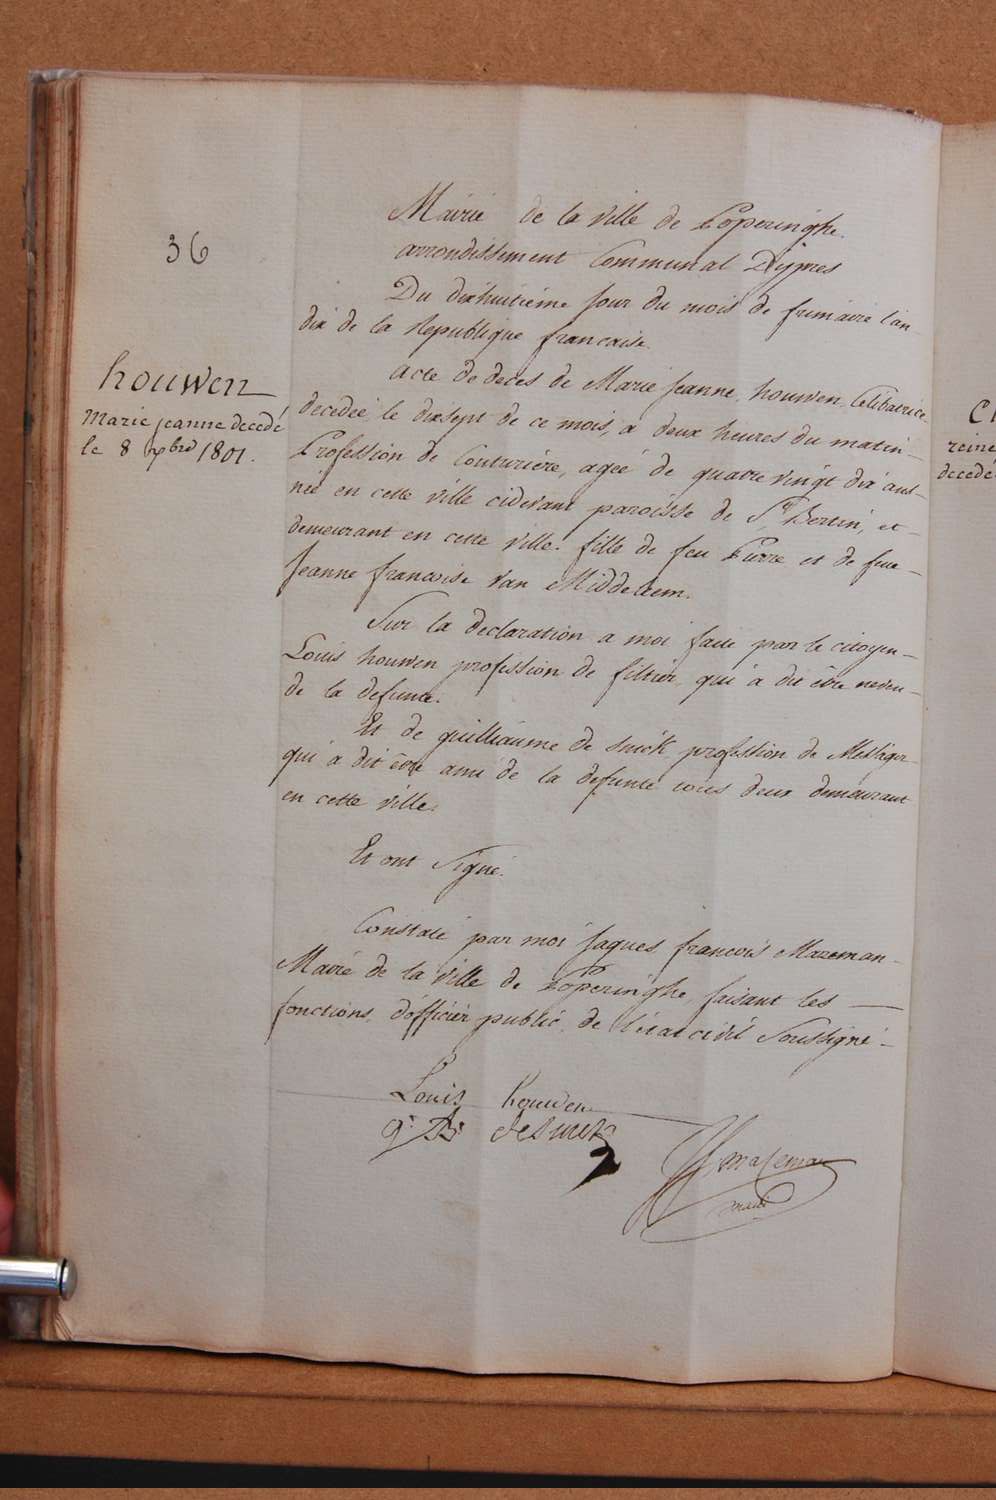 36
houwen
Marie jeanne decedé
le 8 xbre 1801.
Mairie de la ville de Poperinghe.
arrondissement Communal D'ypres
Du dixhuitieme Jour du mois de frimaire l'an
dix de la Republique francaise.
Acte de deces de Marie Jeanne houwen Celibatrice
decedeé le dixsept de ce mois, à deux heures du matin
Profession de Couturière, ageé de quatre vingt dix ans
neé en cette ville cidevant paroisse de St Bertin, et
demeurant en cette ville. fille de feu Pierre et de feue
Jeanne francoise Van Middelem.
Sur la declaration a moi faite par le citoyen
Louis houwen profession de filtier, qui à dit être neveu
de la defunte.
Et de guilliaume de snick profession de Messager
qui à dit être ami de la defunte tous deux demeurant
en cette ville.
Et ont Signé.
Constaté par moi Jaques francois Mazeman
Maire de la ville de Poperinghe, faisant les
fonctions d'officier public de l'état civil Soussigné
Louis houwen
g: B: desnick
Mazeman
maire
C
reine
decedé